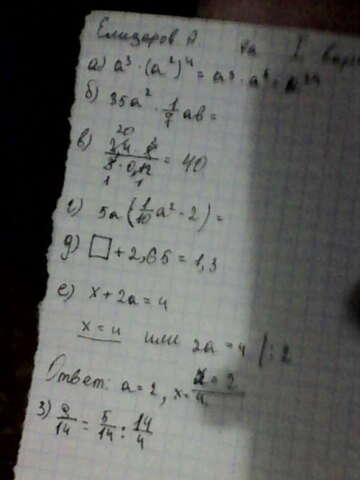 Елизаров А. на 1 вари
а) a³ · (a²)⁴ = a³ · a⁸ =
б) 35a² · 1/7 ab =
в) 20
2,4 · 2 / 3 · 0,12 = 40
1 1
г) 5a (1/10 a² - 2) =
д) □ + 2,65 = 1,3
е) x + 2a = 4
x = 4 или 2a = 4 | : 2
Ответ: a = 2, x =
з) 2/14 = 5/14 : 14/4